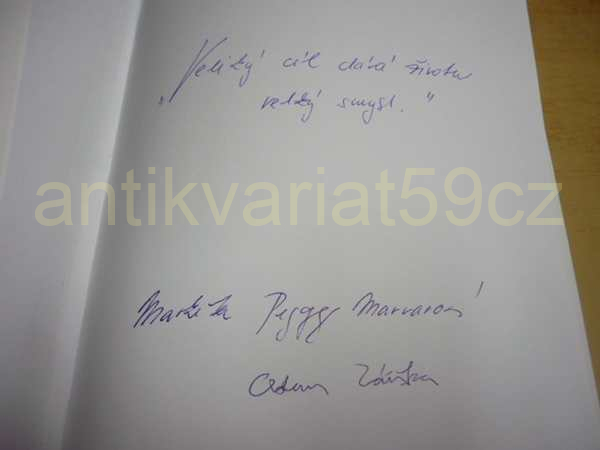 "Veliký cíl dává životu
velký smysl."
antikvariat59cz
Markéta Peggy Marvanová
Adam Záruba